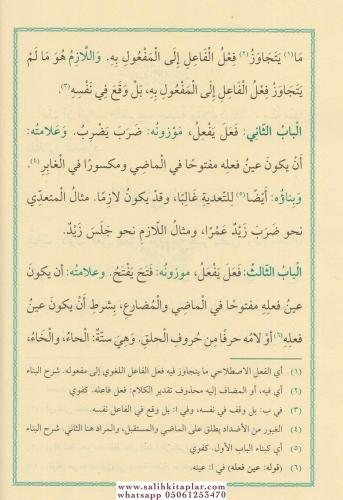 مَا(١) يَتَجَاوَزُ(٢) فِعْلُ الْفَاعِلِ إِلَى الْمَفْعُولِ بِهِ. وَاللَّازِمُ هُوَ مَا لَمْ
يَتَجَاوَزْ فِعْلُ الْفَاعِلِ إِلَى الْمَفْعُولِ بِهِ، بَلْ وَقَعَ فِي نَفْسِهِ(٣).
الْبابُ الثَّاني: فَعَلَ يَفْعِلُ، مَوْزونُه: ضَرَبَ يَضْرِبُ. وَعَلامتُه:
أَنْ يكونَ عينُ فعلِه مفتوحًا في الْماضِي ومكسورًا في الْغابِرِ(٤).
وَبِناؤُه: أَيْضًا(٥) لِلتَّعديةِ غَالِبًا، وقدْ يكونُ لازمًا. مثالُ المتعدِّي
نحو ضَرَبَ زَيْدٌ عَمْرًا، ومثالُ اللَّازمِ نحو جَلَسَ زَيْدٌ.
الْبابُ الثَّالثُ: فَعَلَ يَفْعَلُ، موزونُه: فَتَحَ يَفْتَحُ. وعلامتُه: أن يكون
عينُ فعلِهِ مفتوحًا في الْماضِي والْمُضارِعِ، بِشرطِ أَنْ يكونَ عينُ
فعلِهِ(٦) أوْ لامُه حرفًا مِن حُروفِ الْحلقِ. وَهِيَ ستَّةٌ: الْحاءُ، والْخَاءُ،
(١) أي الفعل الاصطلاحي ما يتجاوز فيه فعل الفاعل اللغوي إلى مفعوله. شرح البناء
(٢) أي فيه، أو المضاف إليه محذوف تقدير الكلام: فعل فاعله. كفوي
(٣) في ب: بل وقف في نفسه، وفي ا: بل وقع في الفاعل نفسه.
(٤) الغبور من الأضداد يطلق على الماضي والمستقبل، والمراد هنا الثاني. شرح البناء
(٥) أي كبناء الباب الأول. كفوي
(٦) (قوله: عين فعله) في ا: عينه.
www.salihkitaplar.com
whatsapp 05061253470